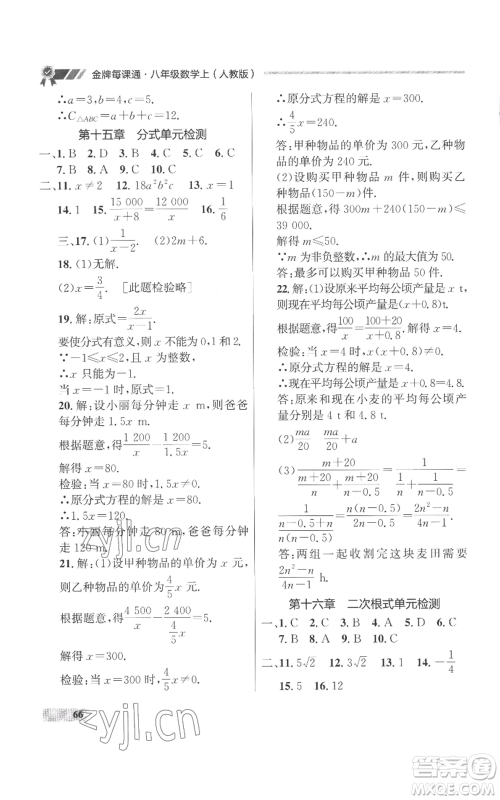 金牌每课通·八年级数学上(人教版)
∴a=3,b=4,c=5.
∴C△ABC=a+b+c=12.
第十五章 分式单元检测
一、1. B 2. D 3. B 4. C 5. D 6. B
7. B 8. A 9. C 10. B
二、11. x≠2 12. 18a²b²c 13. x=1
14. 1 15. 15 000/(x+8)=12 000/x 16. 1/6
三、17. (1)1/(x-1). (2)2m+6.
18. (1)无解.
(2)x=3/4. [此题检验略]
19. 解:原式=2x/(x-1).
要使分式有意义,则x不能为0,1和2.
∵-1≤x≤2,且x为整数,
∴x只能为-1.
20. 解:设小丽每分钟走x m,则爸爸每
分钟走1.5x m.
根据题意,得900/x-900/1.5x=5.
解得x=60.
检验:当x=60时,1.5x≠0.
∴原分式方程的解为x=60.
∴1.5x=90.
答:小丽每分钟走60 m,爸爸每分钟
走90 m.
21. 解:(1)设甲种物品的单价为x元,
则乙种物品的单价为4/5x元.
根据题意,得4 500/x-2 400/(4/5x)=5.
解得x=300.
检验:当x=300时,4/5x≠0.
∴原分式方程的解为x=300.
∴4/5x=240.
答:甲种物品的单价为300元,乙种物
品的单价为240元.
(2)设购买甲种物品m件,则购买乙
种物品(150-m)件.
根据题意,得300m+240(150-m)≤
39 000.
解得m≤50.
∵m为非负整数,∴m的最大值为50.
答:最多购买甲种物品50件.
22. 解:(1)设原来平均每公顷产量是x t,
则现在平均每公顷产量是(x+0.8)t.
根据题意,得100/x=(100+20)/(x+0.8).
解得x=4.
检验:当x=4时,x(x+0.8)≠0.
∴原分式方程的解为x=4.
∴现在平均每公顷产量x+0.8=4.8.
答:现在和原来小麦的平均每公顷产
量分别是4 t和4.8 t.
(2)ma/20 ma/20+a
(3)(m+20)/((m+20)/n+(m+20)/(n-0.5))=1/(1/n+1/(n-0.5))
=1/((n-0.5+n)/(n(n-0.5)))=(2n²-n)/(4n-1).
答:两组一起收割完这块麦田需要
(2n²-n)/(4n-1) h.
第十六章 二次根式单元检测
一、1. C 2. C 3. C 4. D 5. A 6. C
7. B 8. C 9. A 10. B
二、11. 5√2 12. 3√2 13. 1 14. -1/4
15. 5 16. 12
66
zyjl.cn
zyjl.cn
答案圈
MXQE.COM